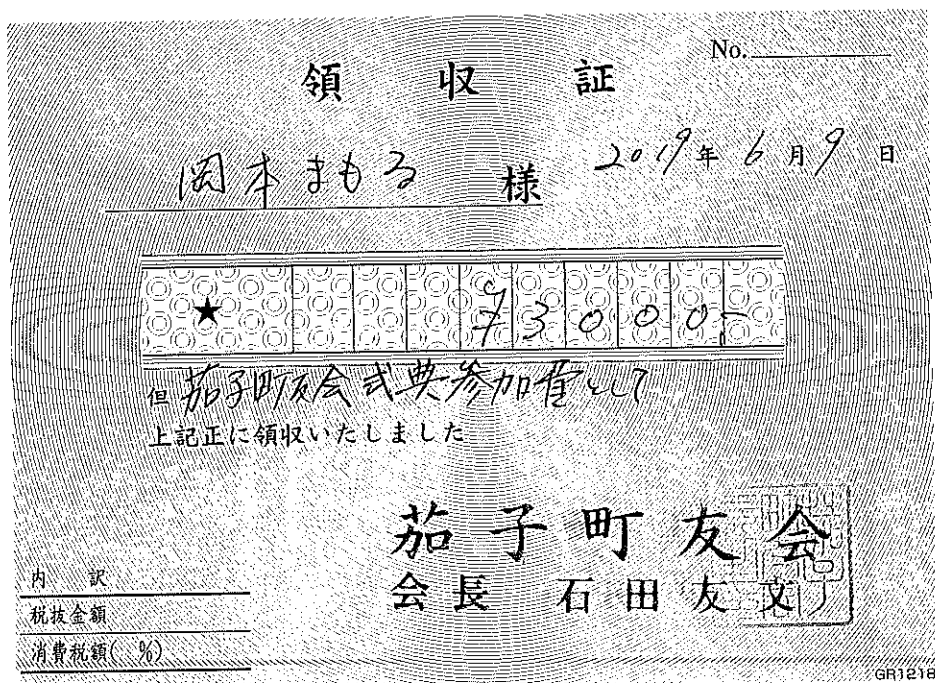 領収証
No.
岡本まもる 様
2019年6月9日
★ ¥3000.-
但 茄子町友会式典参加費として
上記正に領収いたしました
茄子町友会
会長 石田友文
内訳
税抜金額
消費税額( %)
GR1218